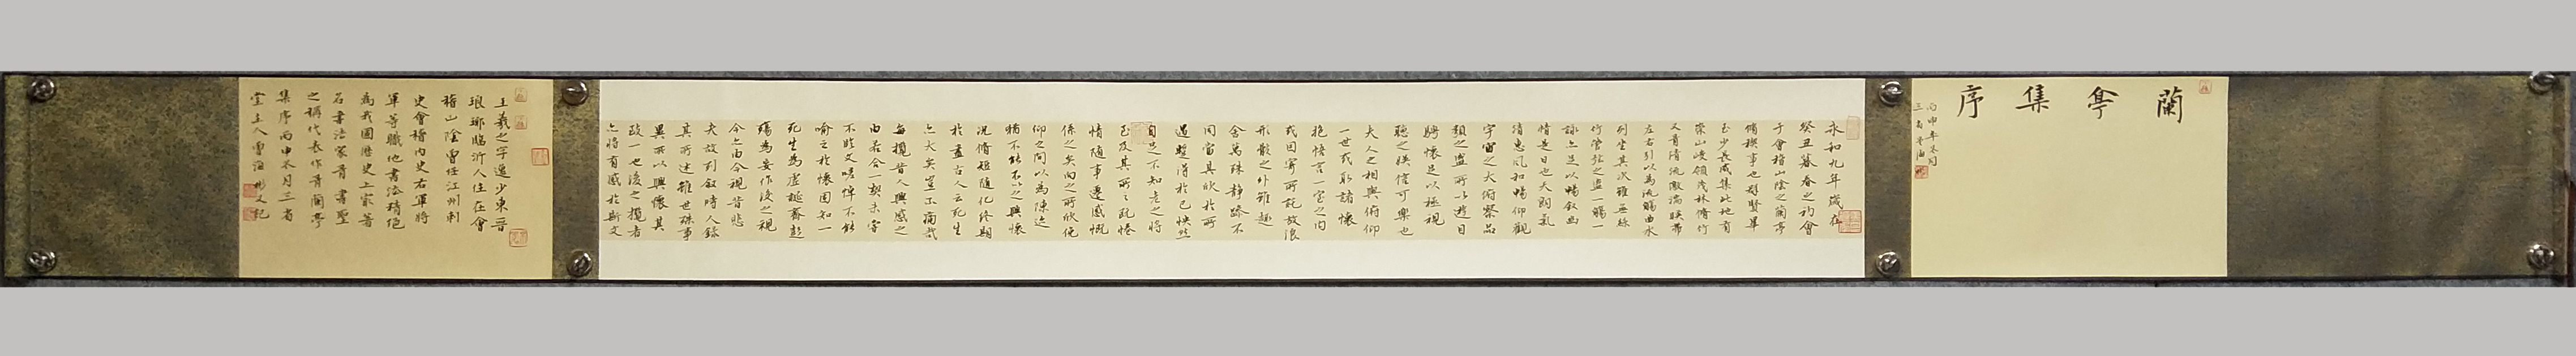 蘭亭集序
丙申年冬月
永和九年歲在
癸丑暮春之初會
于會稽山陰之蘭亭
脩稧事也群賢畢
至少長咸集此地有
崇山峻領茂林脩竹
又有清流激湍暎帶
左右引以為流觴曲水
列坐其次雖無絲
竹管弦之盛一觴一
詠亦足以暢叙幽
情是日也天朗氣
清惠風和暢仰觀
宇宙之大俯察品
類之盛所以遊目
騁懷足以極視
聽之娛信可樂也
夫人之相與俯仰
一世或取諸懷
抱悟言一室之內
或因寄所託放浪
形骸之外雖趣
舍萬殊靜躁不
同當其欣於所
遇蹔得於己怏然
自足不知老之將
至及其所之既惓
情隨事遷感慨
係之矣向之所欣俛
仰之間以為陳迹
猶不能不以之興懷
況脩短隨化終期
於盡古人云死生
亦大矣豈不痛哉
每攬昔人興感之
由若合一契未嘗
不臨文嗟悼不能
喻之於懷固知一
死生為虛誕齊彭
殤為妄作後之視
今亦由今視昔悲
夫故列叙時人錄
其所述雖世殊事
異所以興懷其
致一也後之攬者
亦將有感於斯文
王羲之字逸少東晉
琅琊臨沂人住在會
稽山陰曾任江州刺
史會稽內史右軍將
軍等職他書法精絕
為我國歷史上最著
名書法家有書聖
之稱代表作有蘭亭
集序丙申冬月三省
堂主人曾 彬又記